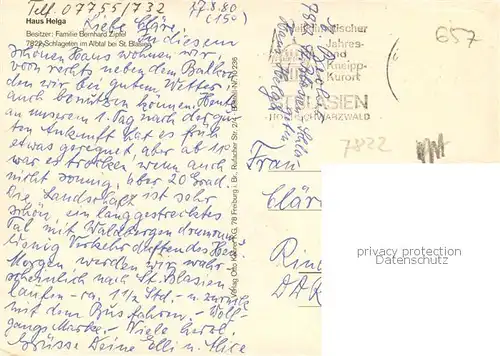 Telf. 07755/732
17.8.80
(150)
Haus Helga
Besitzer: Familie Bernhard Zipfel
7822 Schlageten im Albtal bei St. Blasien
Liebe Cläre, In diesem
schönen Haus wohnen wir,
vorn rechts neben dem Balkon,
den wir bei gutem Wetter
auch benützen können. Heute
an unserem 1. Tag nach der gu-
ten Ankunft hat es früh
etwas geregnet, aber ab 11°
war es trocken, wenn auch
nicht sonnig, aber 20 Grad.
Die Landschaft ist sehr
schön, ein langgestrecktes
Tal mit Waldbergen drumrum,
wenig Verkehr, duftendes Heu.
Morgen werden wir wahr-
scheinlich nach St. Blasien
laufen - ca. 1 1/2 Std. - u. zurück
mit dem Bus fahren. - Wolf-
gangs Marke. - Viele herzl.
Grüsse Deine Elli u. Alice
Verlag Otto Krämer KG, 78 Freiburg i. Br., Rufacher Str.
Heilklimatischer
Jahres-
und
Kneipp-
Kurort
ST. BLASIEN
HOCHSCHWARZWALD
657
7822
Frau
Cläre
privacy protection
Datenschutz